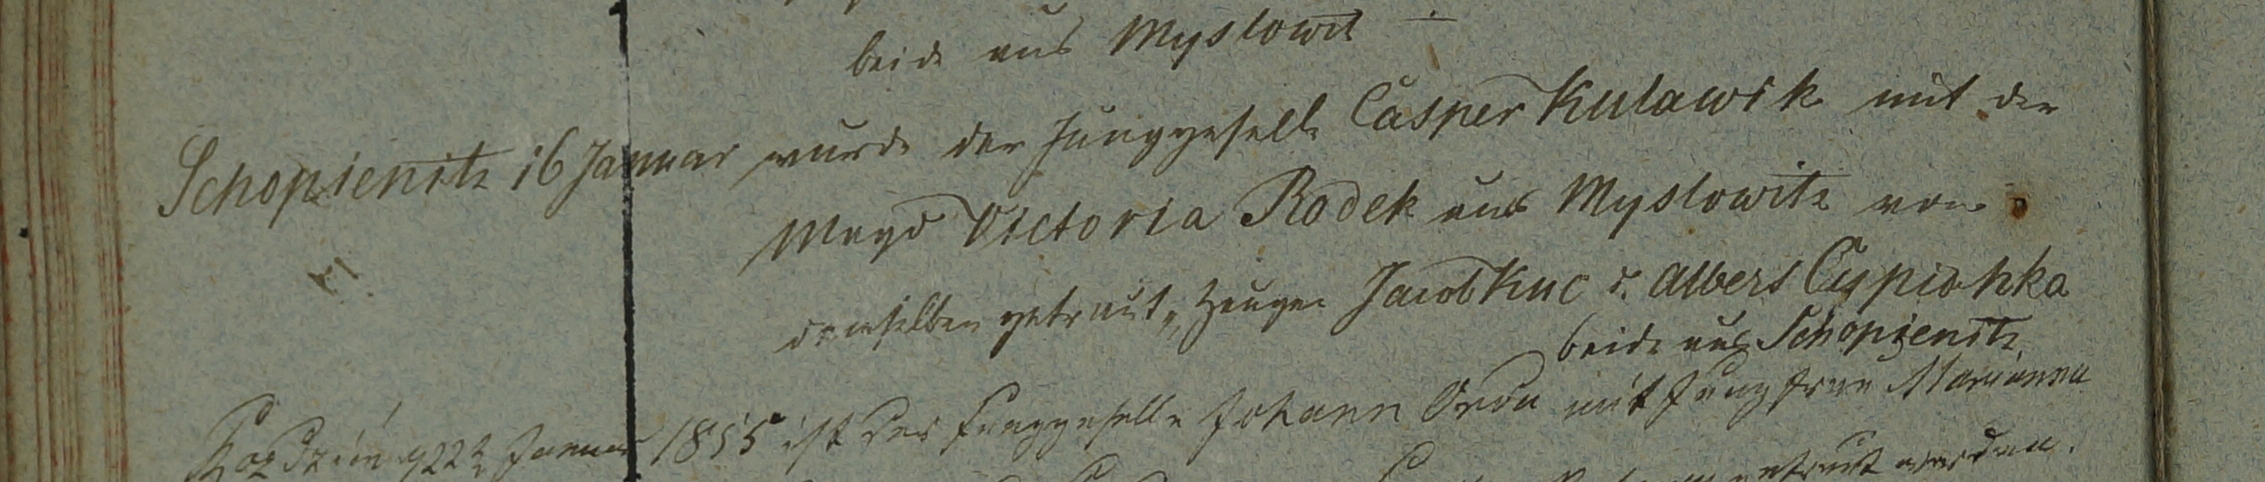 beide aus Myslowit
Schopienitz 16 Januar wurde der Junggeselle Casper Kulawik mit der
Magd Victoria Rodek aus Myslowitz von
demselben getraut, Zeugen Jacob Kuc u. Albert Cypionka
beide aus Schopienitz
Rozdzin 22 Januar 1855 ist der Junggeselle Johann Orda mit Jungfrau Marianna
getraut worden.